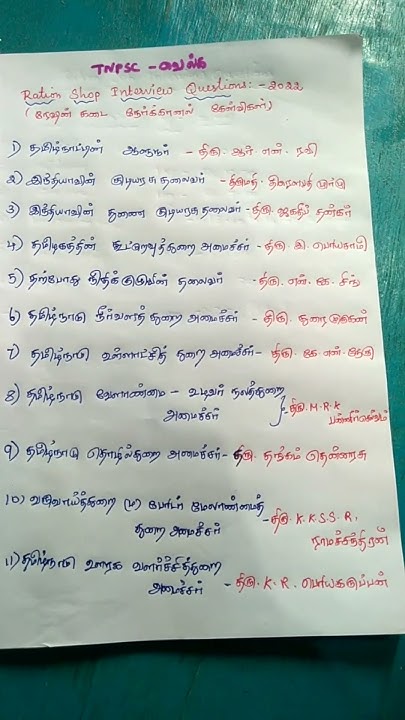 TNPSC - வெல்க
Ration Shop Interview Questions:- 2022
(ரேஷன் கடை நேர்க்காணல் கேள்விகள்)
1) தமிழ்நாட்டின் ஆளுநர் - திரு. ஆர். என். ரவி
2) இந்தியாவின் குடியரசு தலைவர் - திருமதி. திரௌபதி முர்மு
3) இந்தியாவின் துணை குடியரசு தலைவர் - திரு. ஜகதீப் தன்கர்
4) தமிழகத்தின் கூட்டுறவுத்துறை அமைச்சர் - திரு. இ. பெரியசாமி
5) தற்போது நிதிக்குழுவின் தலைவர் - திரு. என். கே. சிங்
6) தமிழ்நாடு நீர்வளத் துறை அமைச்சர் - திரு. துரைமுருகன்
7) தமிழ்நாடு உள்ளாட்சித் துறை அமைச்சர் - திரு. கே. என். நேரு
8) தமிழ்நாடு வேளாண்மை - உழவர் நலத்துறை
அமைச்சர் } திரு. M. R. K
பன்னீர்செல்வம்
9) தமிழ்நாடு தொழில்துறை அமைச்சர் - திரு. தங்கம் தென்னரசு
10) வருவாய்த்துறை (ம) பேரிடர் மேலாண்மைத்
துறை அமைச்சர் - திரு. K. K. S. S. R.
ராமச்சந்திரன்
11) தமிழ்நாடு ஊரக வளர்ச்சித்துறை
அமைச்சர் - திரு. K. R. பெரியகருப்பன்